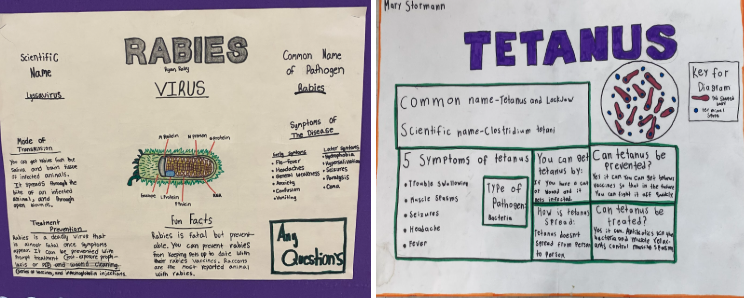 RABIES
Ryan Raby
VIRUS
Scientific
Name
Lyssavirus
Common Name
of Pathogen
Rabies
Mode of
Transmission
You can get Rabies from the
Saliva and brain tissue
of infected animals.
It spreads through the
bite of an infected
animal, and through
open wounds.
M Protein
N Protein
G Protein
L Protein
P Protein
RNA
Symptoms of
The Disease
Early Symptoms
Flu-Fever
Headaches
General Weakness
Anxiety
Confusion
Vomiting
Later Symptoms
Hydrophobia
Hypersalivation
Seizures
Paralysis
Coma
Treatment
Prevention
Rabies is a deadly virus that
is almost fatal once symptoms
appear. It can be prevented with
Prompt treatment (Post-exposure proph-
laxis or PEP and wound cleaning.
Series of vaccine, and immunoglobulin injections.
Fun Facts
Rabies is fatal but prevent-
able. You can prevent rabies
from keeping pets up to date with
their rabies vaccines. Raccoons
are the most reported animal
with rabies.
Any
Question's
Mary Stormann
TETANUS
Common name-Tetanus and Lockjaw
Scientific name-Clostridium tetani
Key for
Diagram
5 Symptoms of tetanus
• Trouble Swallowing
• Muscle Spasms
• Seizures
• Headache
• Fever
Type of
Pathogen:
Bacteria
You can get
tetanus by:
If you have a cut
or wound and it
gets infected.
Can tetanus be
prevented?
Yes it can. You can get tetanus
vaccines so that in the future
You can fight it off quickly
How is tetanus
Spread:
Tetanus doesn't
Spread from Person
to Person
Can tetanus be
treated?
Yes it can. Antibiotics kill the
bacteria and muscle relax-
ants control muscle spasms